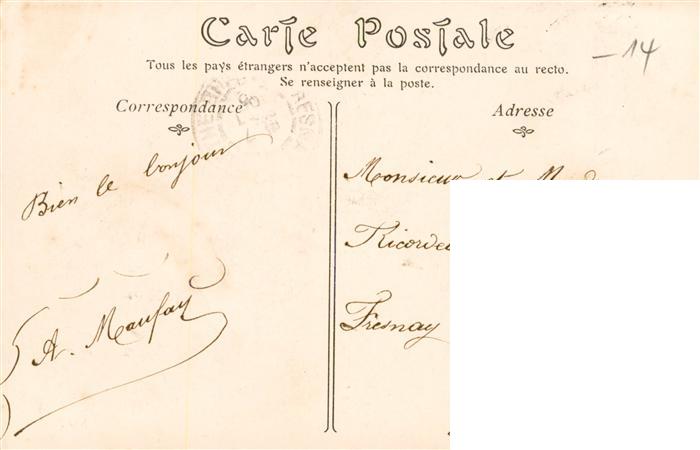 Carte Postale
- 14
Tous les pays étrangers n'acceptent pas la correspondance au recto.
Se renseigner à la poste.
Correspondance
Bien le bonjour
A. Maufay
Adresse
Monsieur et
Fresnay